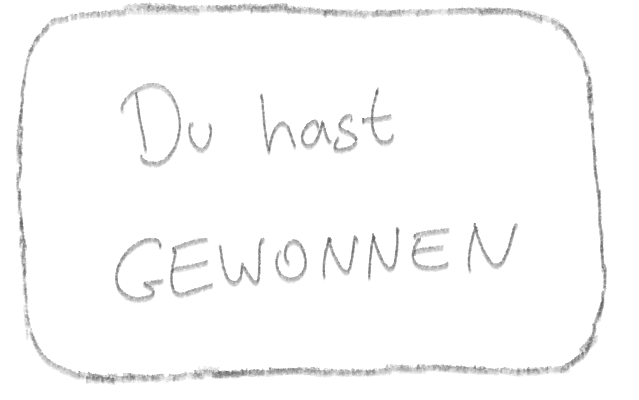 Du hast
GEWONNEN